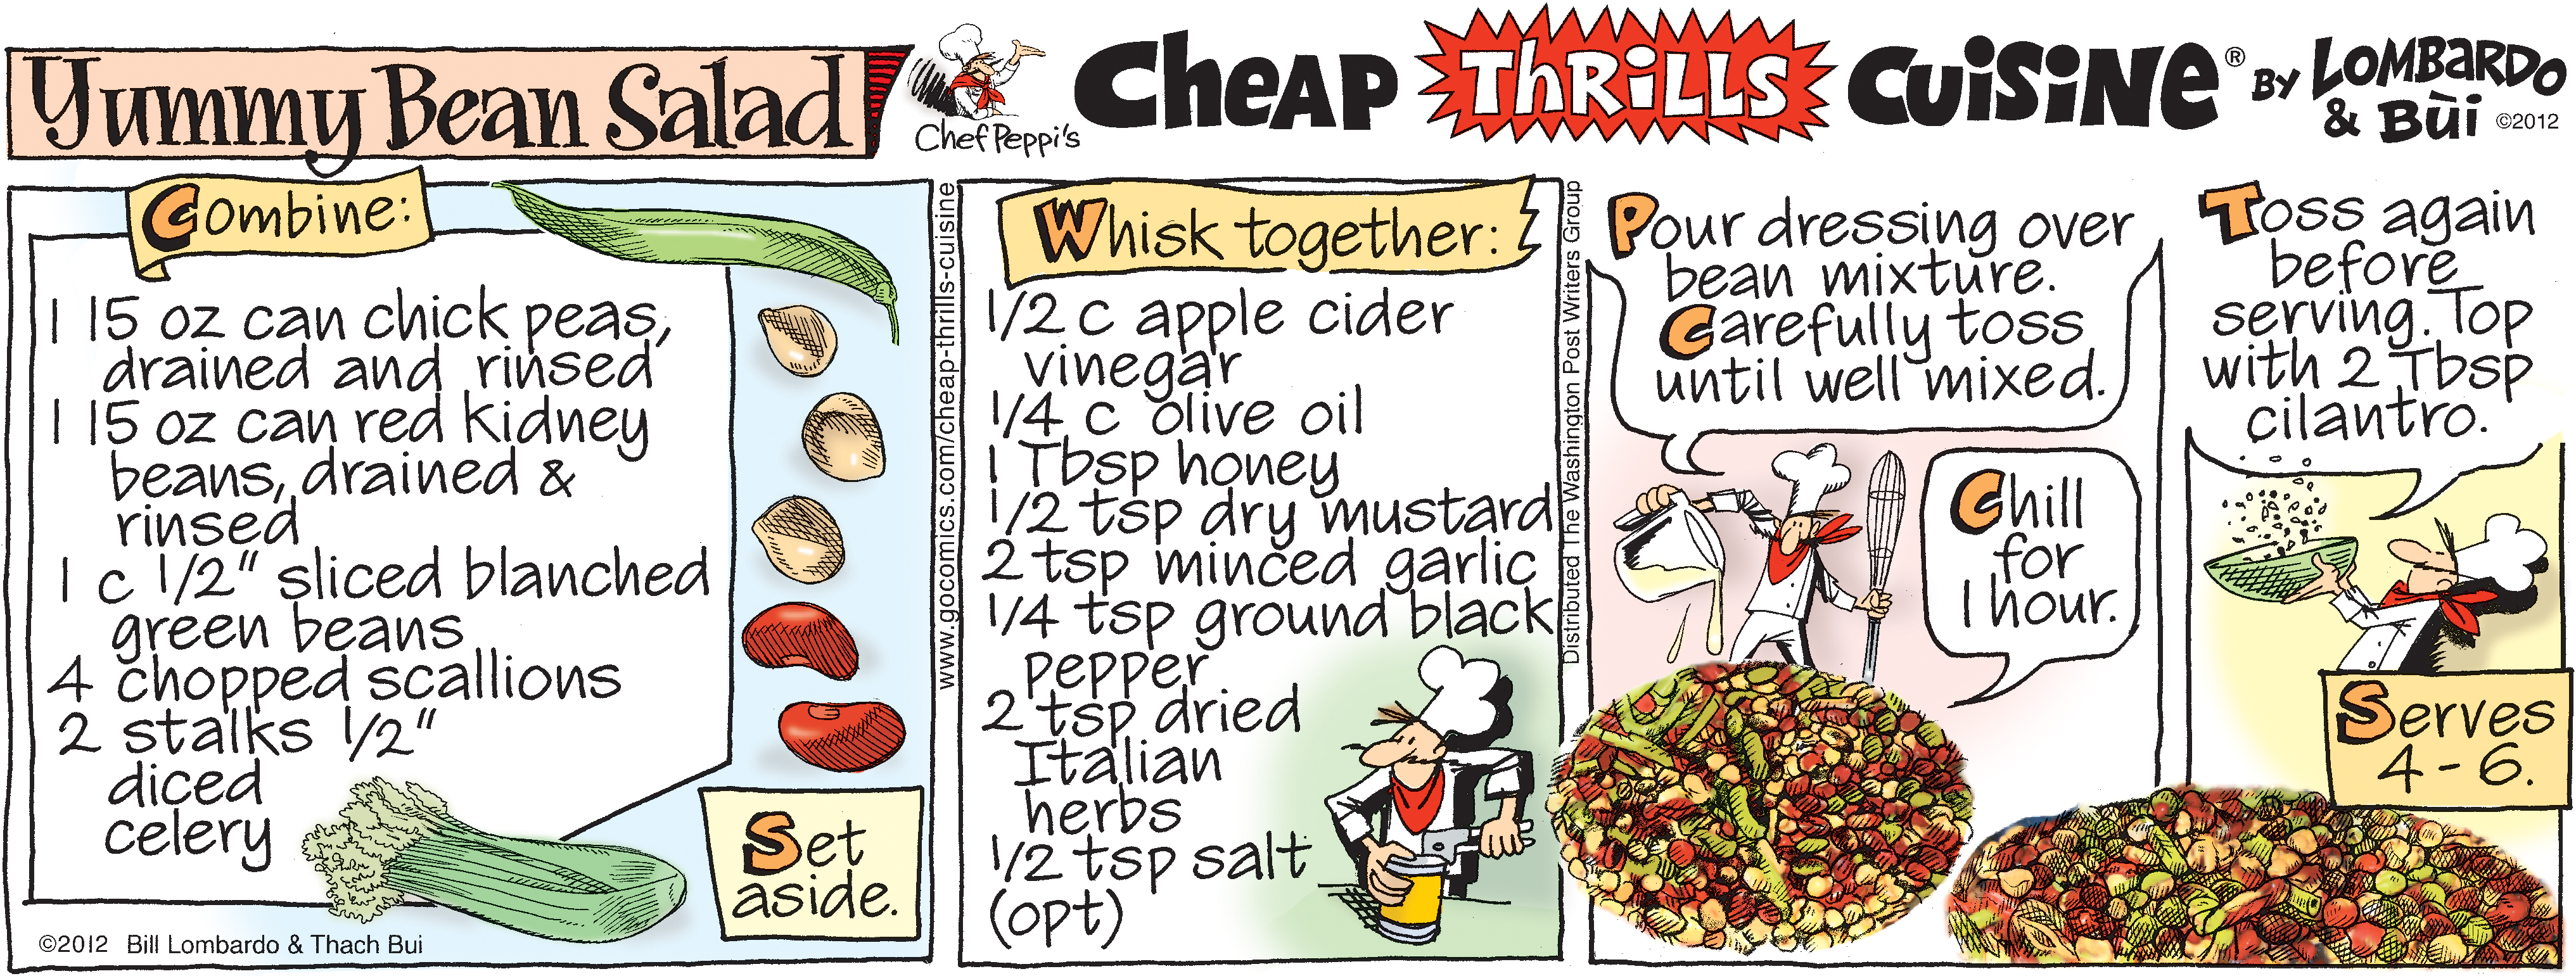 Yummy Bean Salad
Chef Peppi's
Cheap Thrills Cuisine® by Lombardo
& Bùi ©2012
Combine:
1 15 oz can chick peas,
drained and rinsed
1 15 oz can red kidney
beans, drained &
rinsed
1 c 1/2" sliced blanched
green beans
4 chopped scallions
2 stalks 1/2"
diced
celery
Set
aside.
©2012 Bill Lombardo & Thach Bui
www.gocomics.com/cheap-thrills-cuisine
Whisk together:
1/2 c apple cider
vinegar
1/4 c olive oil
1 Tbsp honey
1/2 tsp dry mustard
2 tsp minced garlic
1/4 tsp ground black
pepper
2 tsp dried
Italian
herbs
1/2 tsp salt
(opt)
Distributed The Washington Post Writers Group
Pour dressing over
bean mixture.
Carefully toss
until well mixed.
Chill
for
1 hour.
Toss again
before
serving. Top
with 2 Tbsp
cilantro.
Serves
4-6.